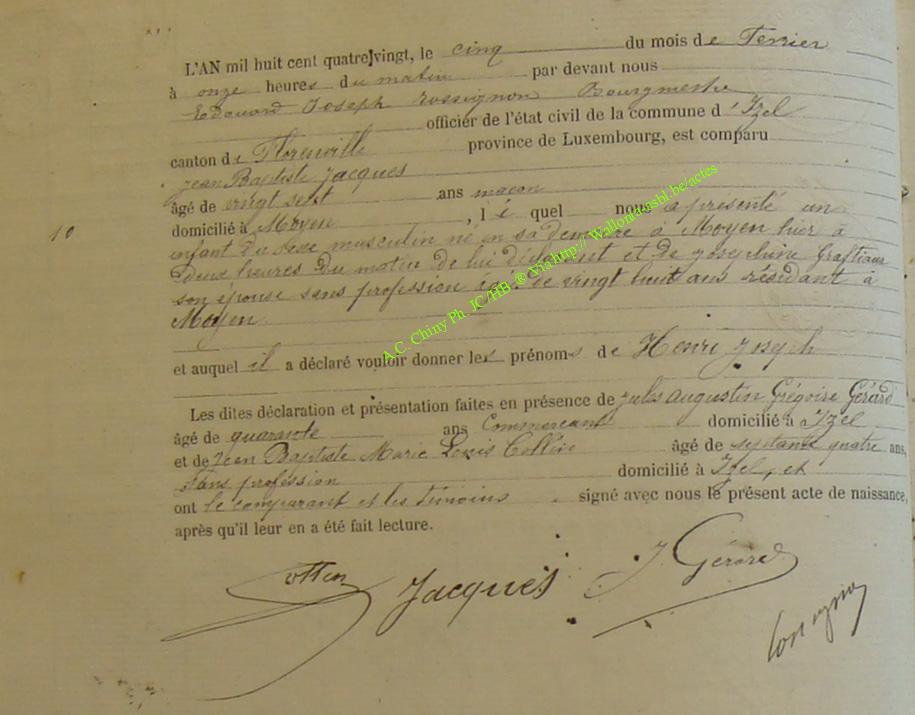 L'AN mil huit cent quatre-vingt, le cinq du mois de Fevrier
à onze heures du matin par devant nous
Edouard Joseph Rossignon Bourgmestre
officier de l'état civil de la commune d'Izel
canton de Florenville province de Luxembourg, est comparu
Jean Baptiste Jacques
âgé de vingt sept ans maçon
domicilié à Moyen, lequel nous a présenté un
10
enfant du sexe masculin né en sa demeure à Moyen hier à
deux heures du matin de lui déclarant et de Josephine
son épouse sans profession âgée de vingt huit ans résidant à
Moyen
et auquel il a déclaré vouloir donner les prénoms de Henri Joseph
Les dites déclaration et présentation faites en présence de Jules Augustin Grégoire Gérard
âgé de quarante ans Commerçant domicilié à Izel
et de Jean Baptiste Marie Louis Collin âgé de septante quatre ans,
sans profession domicilié à Izel, et
ont le comparant et les témoins signé avec nous le présent acte de naissance,
après qu'il leur en a été fait lecture.
Jacques J. Gérard
A.C. Chiny Ph. JC/HB ® Via http:// Wallonia asbl be/actes